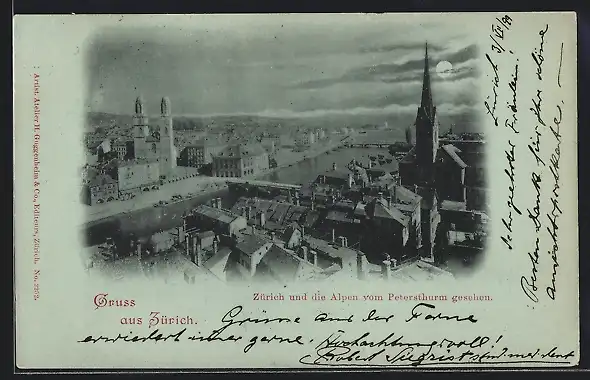 Artist. Atelier H. Guggenheim & Co., Editeurs, Zürich. No. 2273.
Zürich 3/VI/99
Sehr geehrtes Fräulein!
Besten Dank für Ihre schöne
Ansichtspostkarte. —
Zürich und die Alpen vom Petersthurm gesehen.
Gruss
aus Zürich.
Grüsse aus der Ferne
erwiedert immer gerne. Hochachtungsvoll!
Robert Siegrist stud med dent